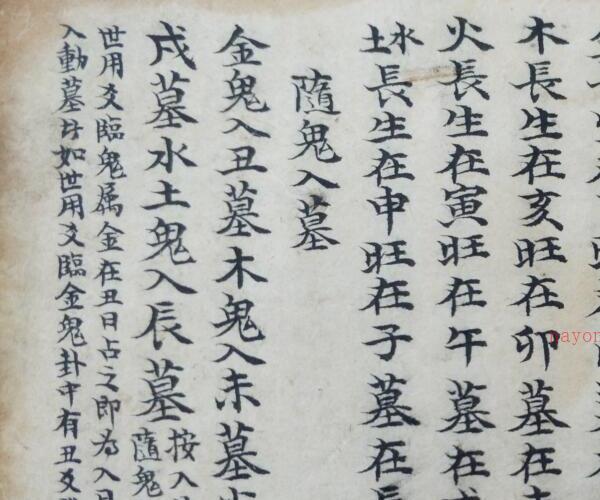 木長生在亥旺在卯墓在
火長生在寅旺在午墓在
水土長生在申旺在子墓在
隨鬼入墓
金鬼入丑墓木鬼入未墓
戌墓水土鬼入辰墓按入
隨鬼
世用爻臨鬼属金在丑日占之即為入
入動墓如世用爻臨金鬼卦中有丑爻